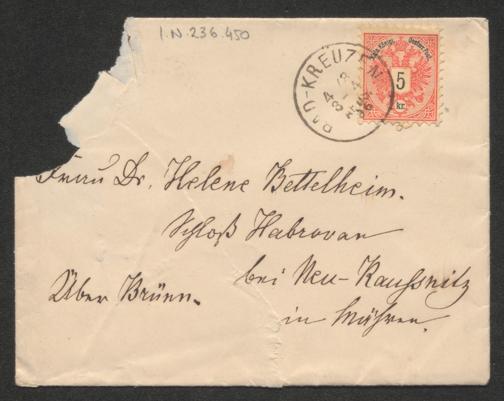 I.N. 236.450
BAD-KREUZEN
Kais. Königl. Oesterr. Post.
5
kr.
Frau Dr. Helene Bettelheim.
Schloß Habrovan
bei Neu-Raußnitz
Über Brünn.
in Mähren.